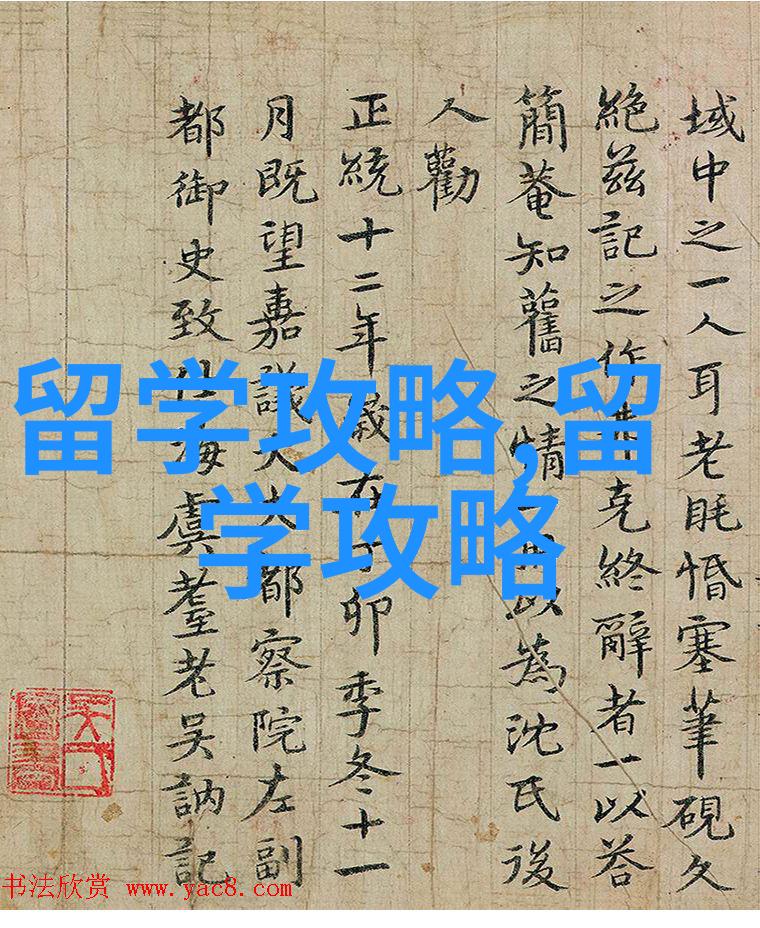 域中之一人耳老眊惛塞筆硯久
絶兹記之作克終辭者一以荅
簡菴知舊之情一以為沈氏後
人勸
正統十二年歲在丁卯季冬十一
月既望嘉議大夫都察院左副
都御史致仕海虞耋老吳訥記
留学攻略,留
学攻略
书法欣赏 www.yac8.com